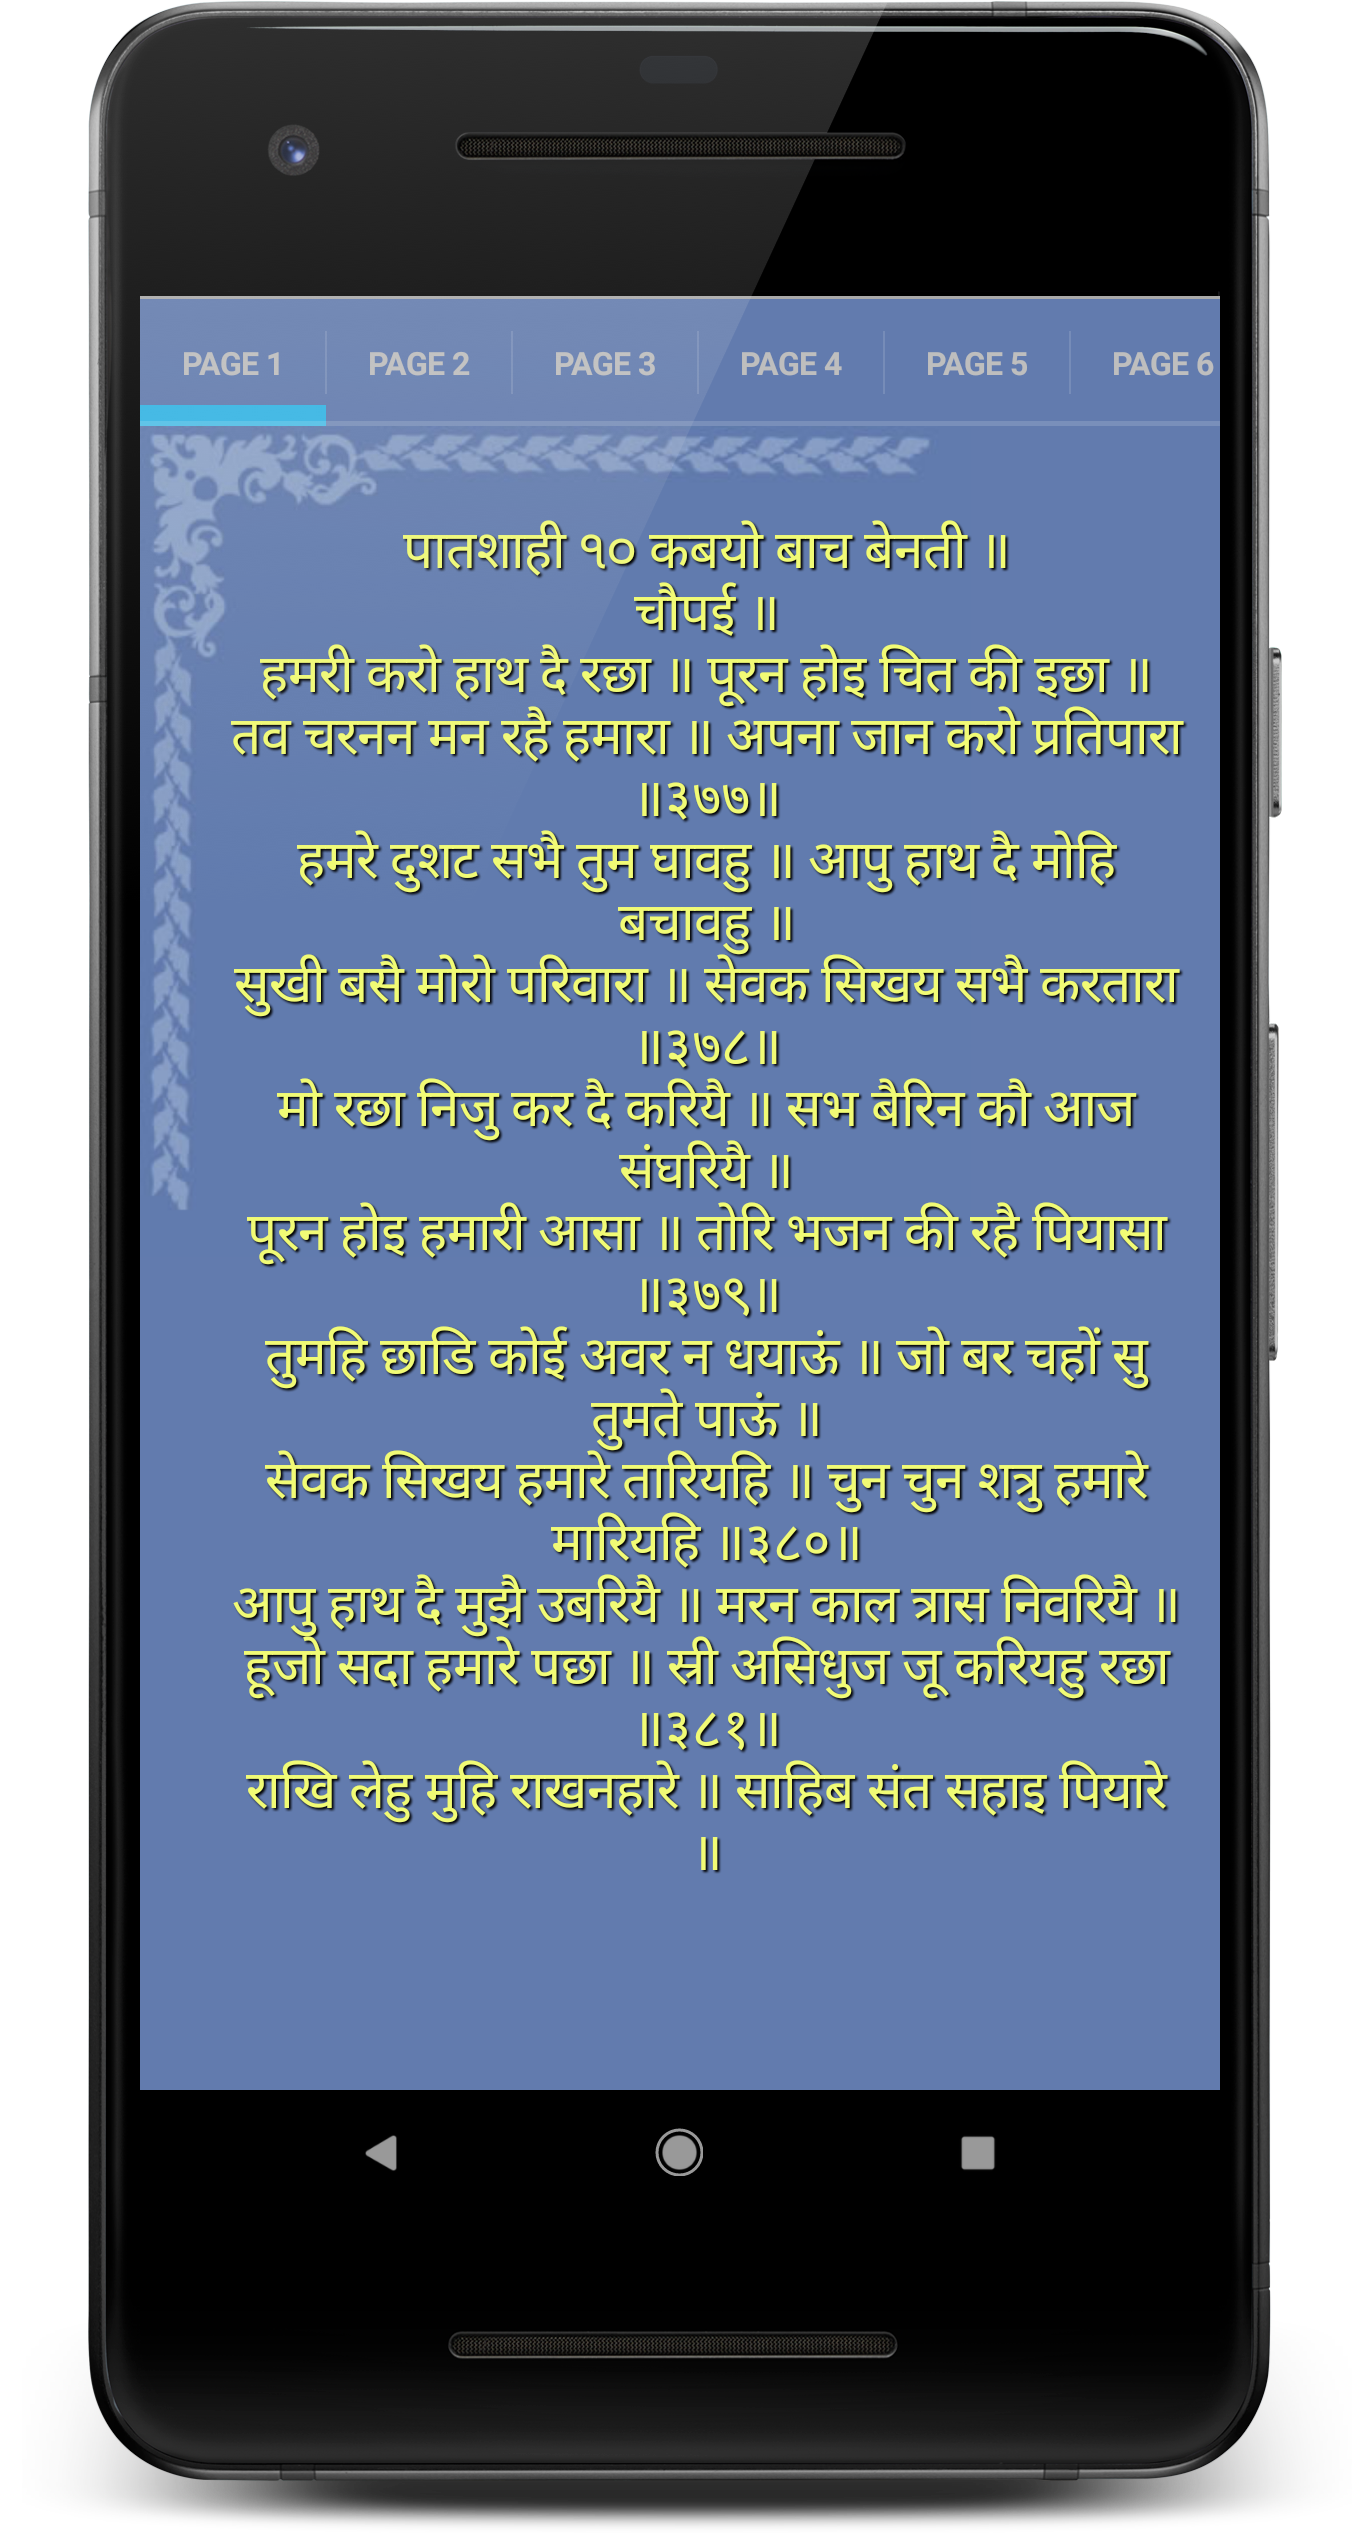 PAGE 1 PAGE 2 PAGE 3 PAGE 4 PAGE 5 PAGE 6
पातशाही १० कबयो बाच बेनती ॥
चौपई ॥
हमरी करो हाथ दै रछा ॥ पूरन होइ चित की इछा ॥
तव चरनन मन रहै हमारा ॥ अपना जान करो प्रतिपारा
॥३७७॥
हमरे दुशट सभै तुम घावहु ॥ आपु हाथ दै मोहि
बचावहु ॥
सुखी बसै मोरो परिवारा ॥ सेवक सिखय सभै करतारा
॥३७८॥
मो रछा निजु कर दै करियै ॥ सभ बैरिन कौ आज
संघरियै ॥
पूरन होइ हमारी आसा ॥ तोरि भजन की रहै पियासा
॥३७९॥
तुमहि छाडि कोई अवर न धयाऊं ॥ जो बर चहों सु
तुमते पाऊं ॥
सेवक सिखय हमारे तारियहि ॥ चुन चुन शत्रु हमारे
मारियहि ॥३८०॥
आपु हाथ दै मुझै उबरियै ॥ मरन काल त्रास निवरियै ॥
हूजो सदा हमारे पछा ॥ स्री असिधुज जू करियहु रछा
॥३८१॥
राखि लेहु मुहि राखनहारे ॥ साहिब संत सहाइ पियारे
॥